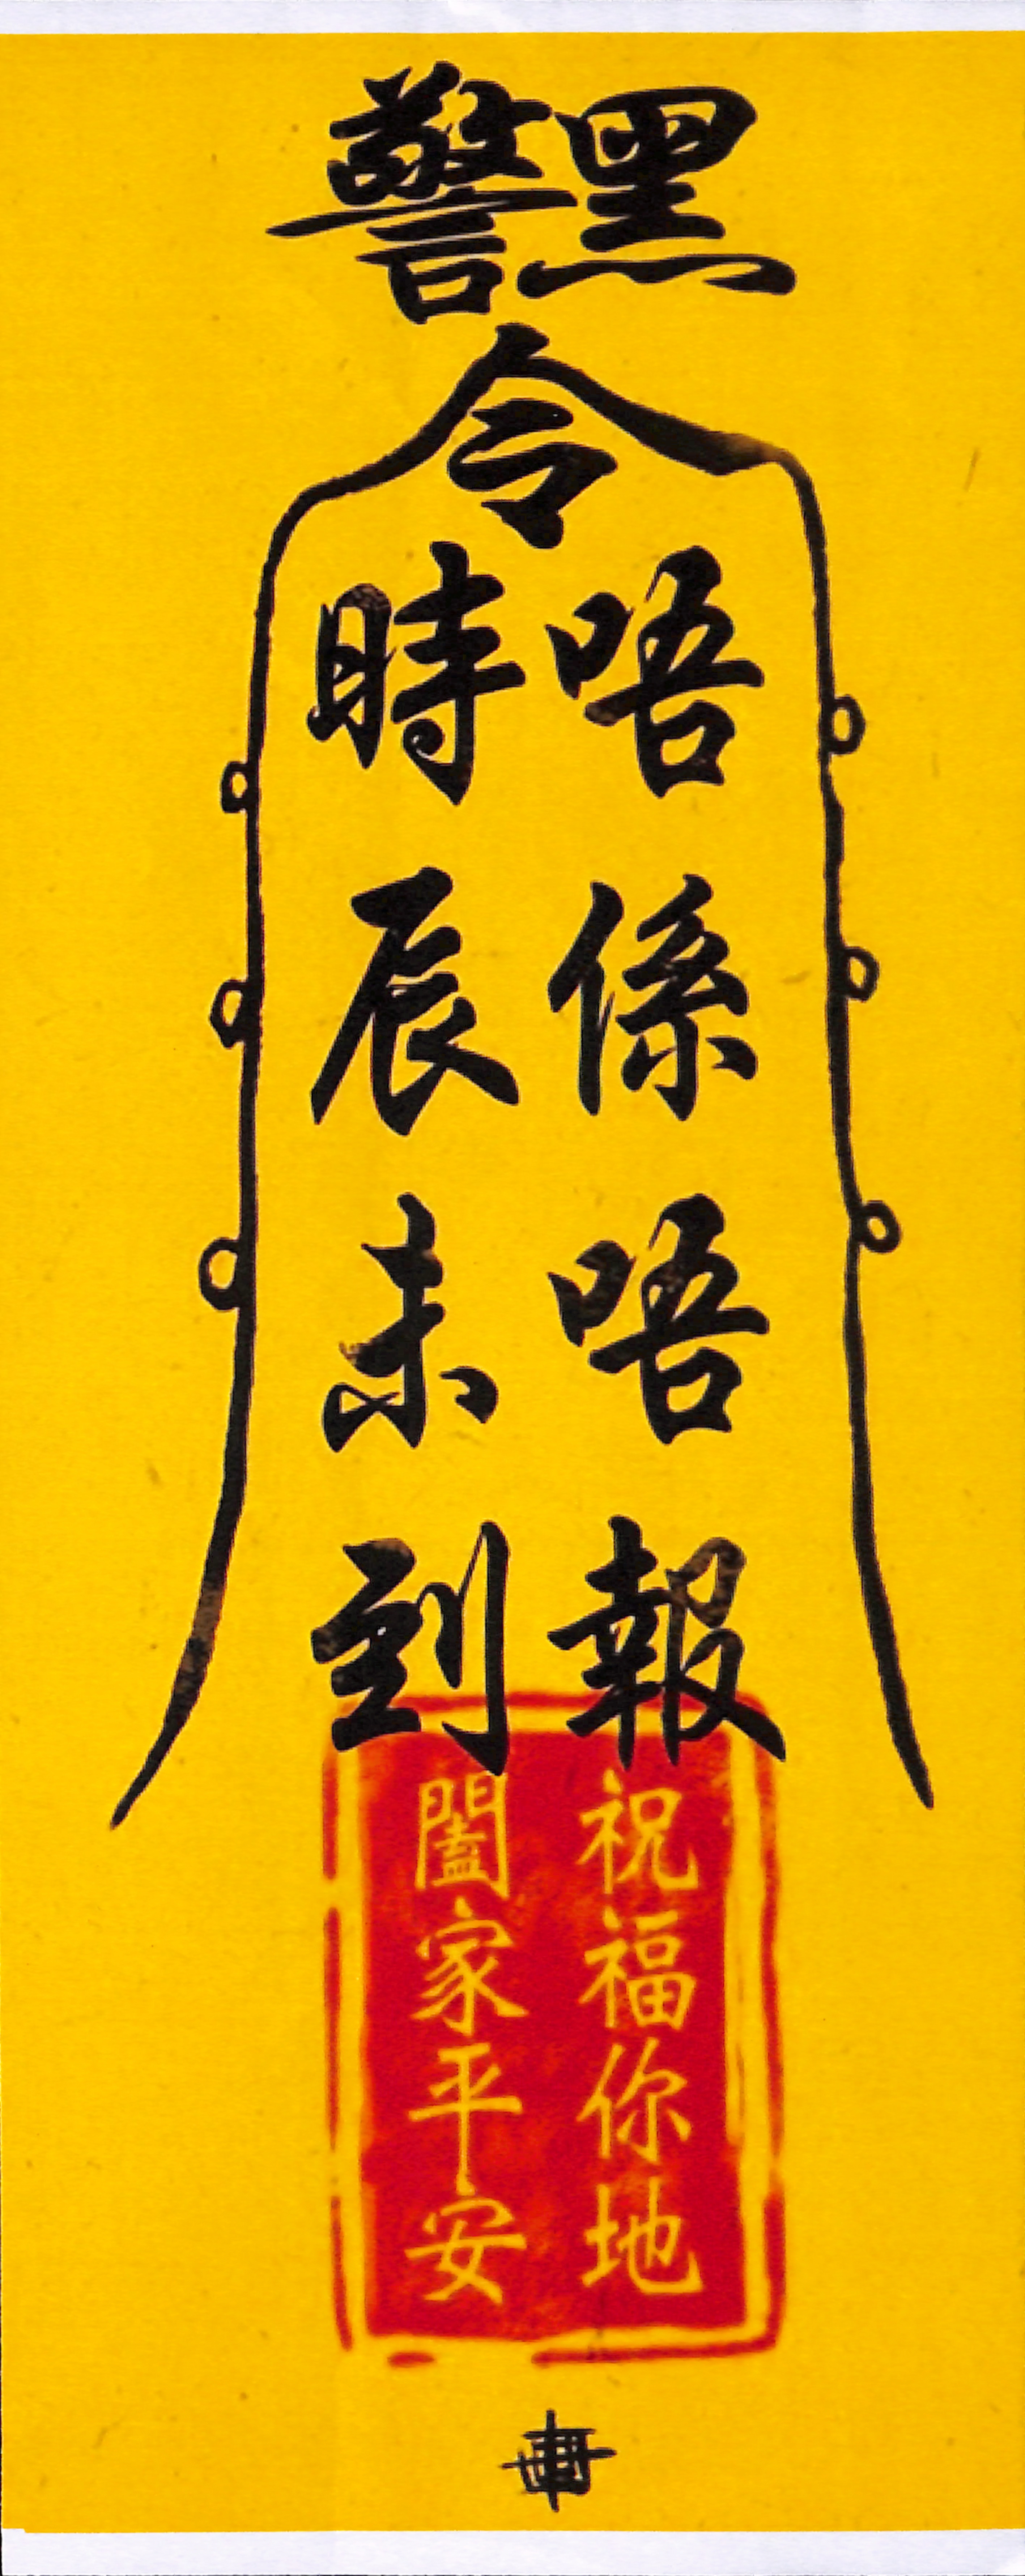 黑警
令
唔係唔報
時辰未到
祝福你地
闔家平安